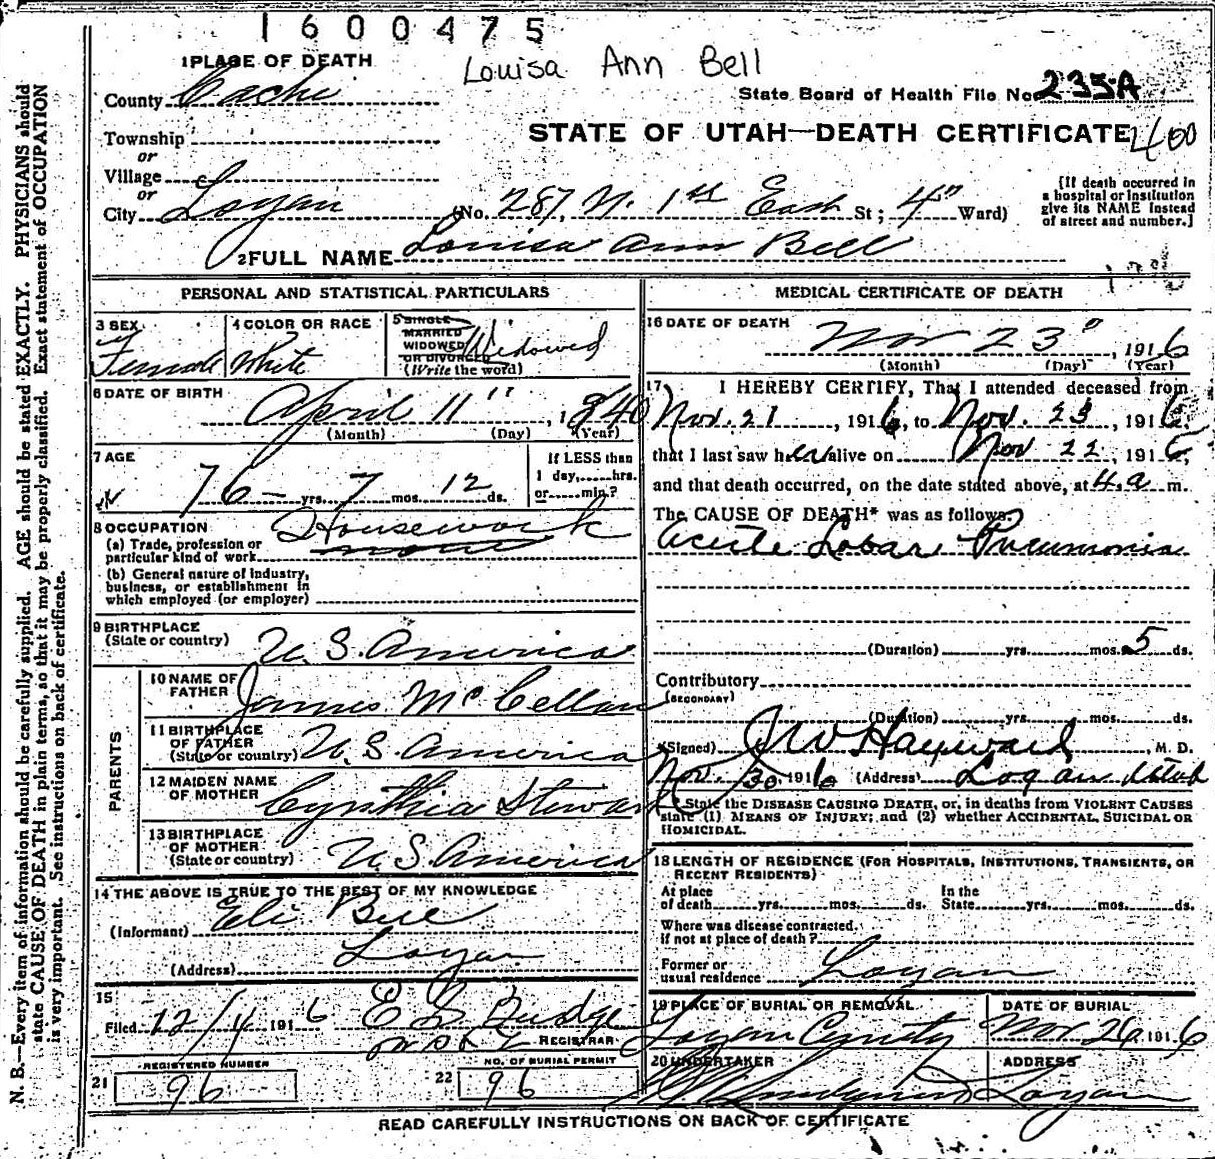 1600475
Louisa Ann Bell
1 PLACE OF DEATH
County Cache
State Board of Health File No. 235A
STATE OF UTAH—DEATH CERTIFICATE
400
Township
or
Village
or
City Logan (No. 287, N. 1st East St; 4" Ward)
[If death occurred in
a hospital or institution
give its NAME instead
of street and number.]
2 FULL NAME Louisa Ann Bell
PERSONAL AND STATISTICAL PARTICULARS
3 SEX
Female
4 COLOR OR RACE
White
5 SINGLE
MARRIED
WIDOWED
OR DIVORCED
Widowed
(Write the word)
6 DATE OF BIRTH
April 11", 1840
(Month) (Day) (Year)
7 AGE
76 yrs. 7 mos. 12 ds.
If LESS than
1 day,......hrs.
or......min.?
8 OCCUPATION
(a) Trade, profession or
particular kind of work
Housework
(b) General nature of industry,
business, or establishment in
which employed (or employer)
9 BIRTHPLACE
(State or country) U. S. America
PARENTS
10 NAME OF
FATHER James McCellan
11 BIRTHPLACE
OF FATHER
(State or country) U. S. America
12 MAIDEN NAME
OF MOTHER Cynthia Steward
13 BIRTHPLACE
OF MOTHER
(State or country) U. S. America
14 THE ABOVE IS TRUE TO THE BEST OF MY KNOWLEDGE
(Informant) Eli Bell
(Address) Logan
15
Filed 12/4 1916 E G Budge
REGISTRAR
REGISTERED NUMBER
21 96
NO. OF BURIAL PERMIT
22 96
MEDICAL CERTIFICATE OF DEATH
16 DATE OF DEATH
Nov 23", 1916
(Month) (Day) (Year)
17 I HEREBY CERTIFY, That I attended deceased from
Nov. 21, 1916, to Nov. 23, 1916,
that I last saw her alive on Nov 22, 1916,
and that death occurred, on the date stated above, at 4 a m.
The CAUSE OF DEATH* was as follows:
Acute Lobar Pneumonia
(Duration) yrs. mos. 5 ds.
Contributory
(SECONDARY)
(Duration) yrs. mos. ds.
(Signed) J W Hayward, M. D.
Nov. 30, 1916 (Address) Logan Utah
* State the DISEASE CAUSING DEATH, or, in deaths from VIOLENT CAUSES
state (1) MEANS OF INJURY; and (2) whether ACCIDENTAL, SUICIDAL OR
HOMICIDAL.
18 LENGTH OF RESIDENCE (FOR HOSPITALS, INSTITUTIONS, TRANSIENTS, OR
RECENT RESIDENTS)
At place
of death yrs. mos. ds.
In the
State yrs. mos. ds.
Where was disease contracted,
if not at place of death?
Former or
usual residence Logan
19 PLACE OF BURIAL OR REMOVAL
Logan
DATE OF BURIAL
Nov. 26 1916
20 UNDERTAKER
ADDRESS
Logan
READ CAREFULLY INSTRUCTIONS ON BACK OF CERTIFICATE
N. B.—Every item of information should be carefully supplied. AGE should be stated EXACTLY. PHYSICIANS should
state CAUSE OF DEATH in plain terms, so that it may be properly classified. Exact statement of OCCUPATION
is very important. See instructions on back of certificate.